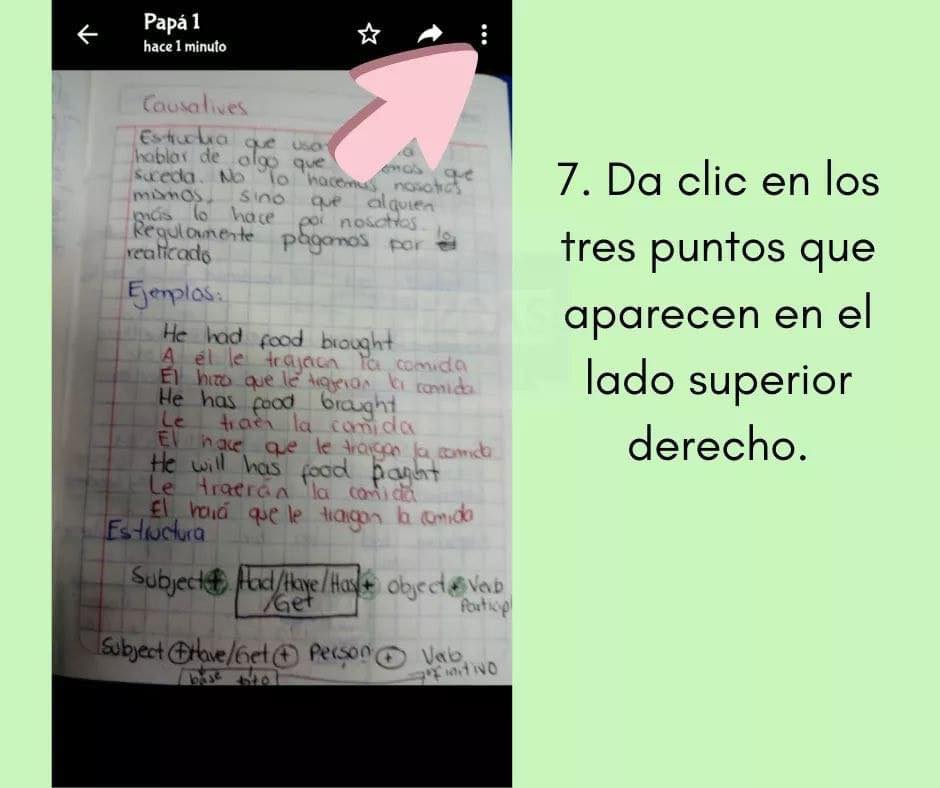 Papá 1
hace 1 minuto
Causatives
Estructura que
hablar de algo que que
suceda. No lo hacemos nosotros
mismos, sino que alguien
más lo hace por nosotros.
Regularmente pagamos por lo
realicado
Ejemplos:
He had food brought
A él le trajeron la comida
Él hizo que le trajeran la comida
He has food brought
Le traen la comida
Él hace que le traigan la comida
He will has food
Le traerán la comida
Él hará que le traigan la comida
Estructura
Subject + Had/Have/Has + object + Verb
/Get Particip
Subject + Have/Get + Person + Verb
base infinitivo
7. Da clic en los
tres puntos que
aparecen en el
lado superior
derecho.